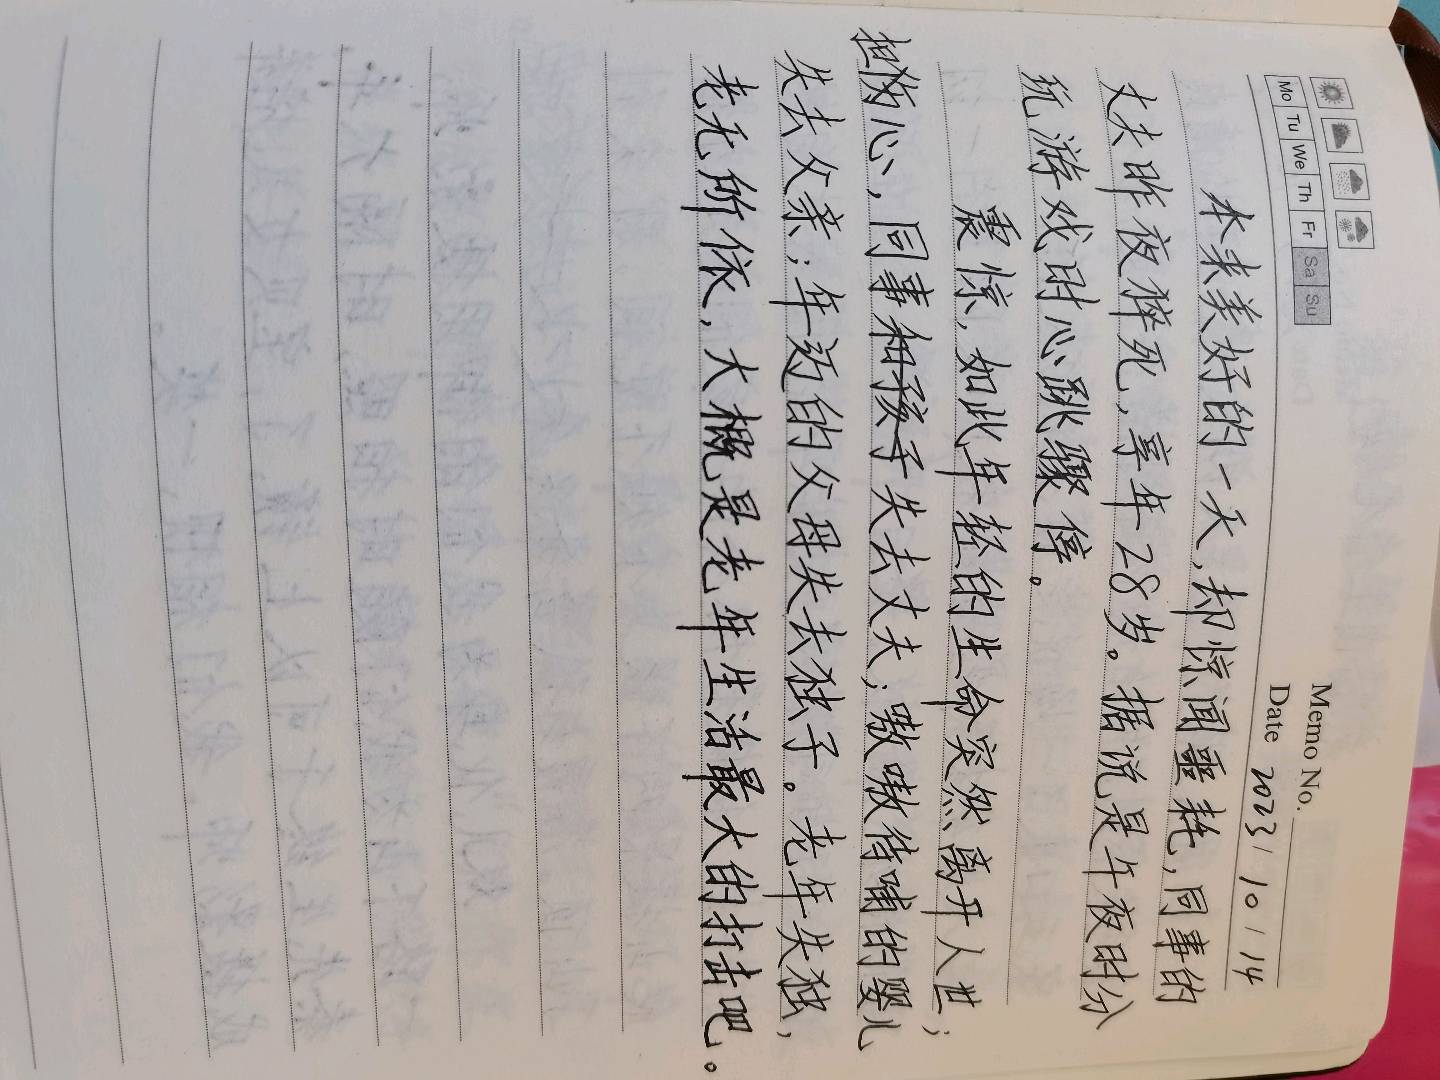 Memo No.
Mo Tu We Th Fr Sa Su
Date 2023/10/14
本来美好的一天，却惊闻噩耗，同事的
丈夫昨夜猝死，享年28岁。据说是午夜时分
玩游戏时心跳骤停。
震惊，如此年轻的生命突然离开人世；
担伤心，同事和孩子失去丈夫；嗷嗷待哺的婴儿
失去父亲；年迈的父母失去独子。老年失独，
老无所依，大概是老年生活最大的打击吧。